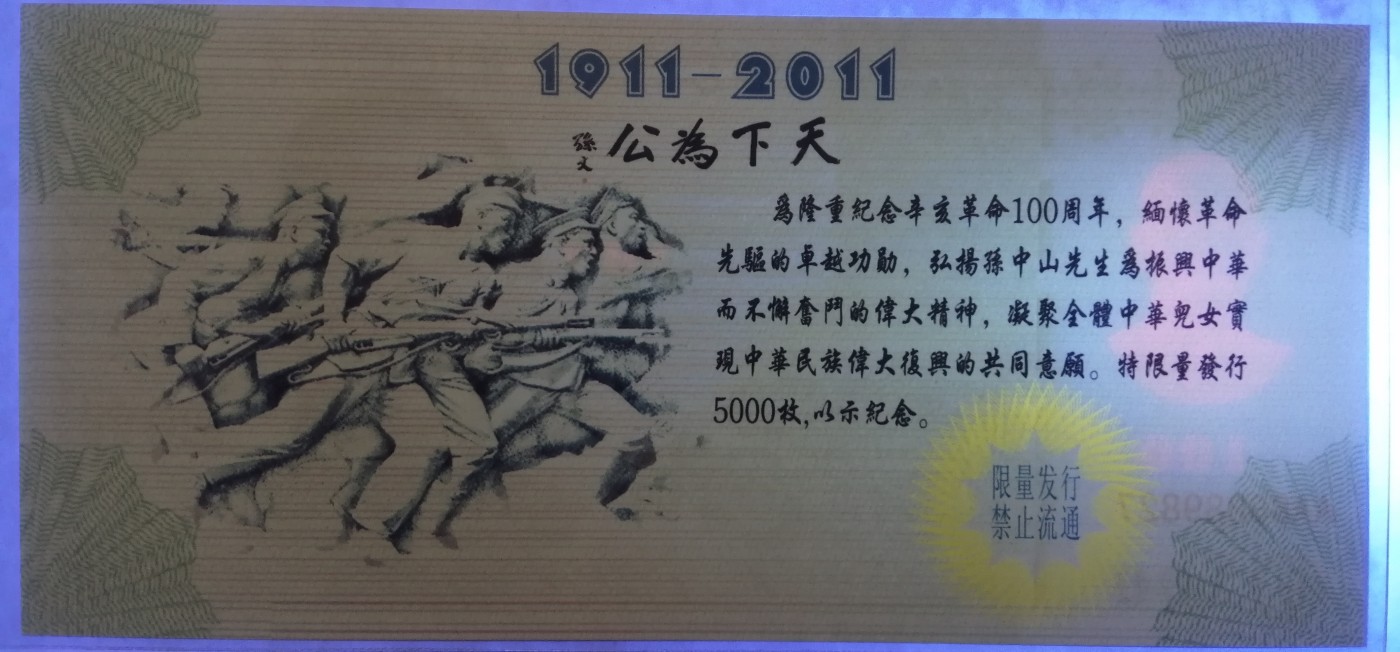 1911-2011
天下為公
孫文
爲隆重紀念辛亥革命100周年，緬懷革命
先驅的卓越功勛，弘揚孫中山先生爲振興中華
而不懈奮鬥的偉大精神，凝聚全體中華兒女實
現中華民族偉大復興的共同意願。特限量發行
5000枚,以示紀念。
限量发行
禁止流通